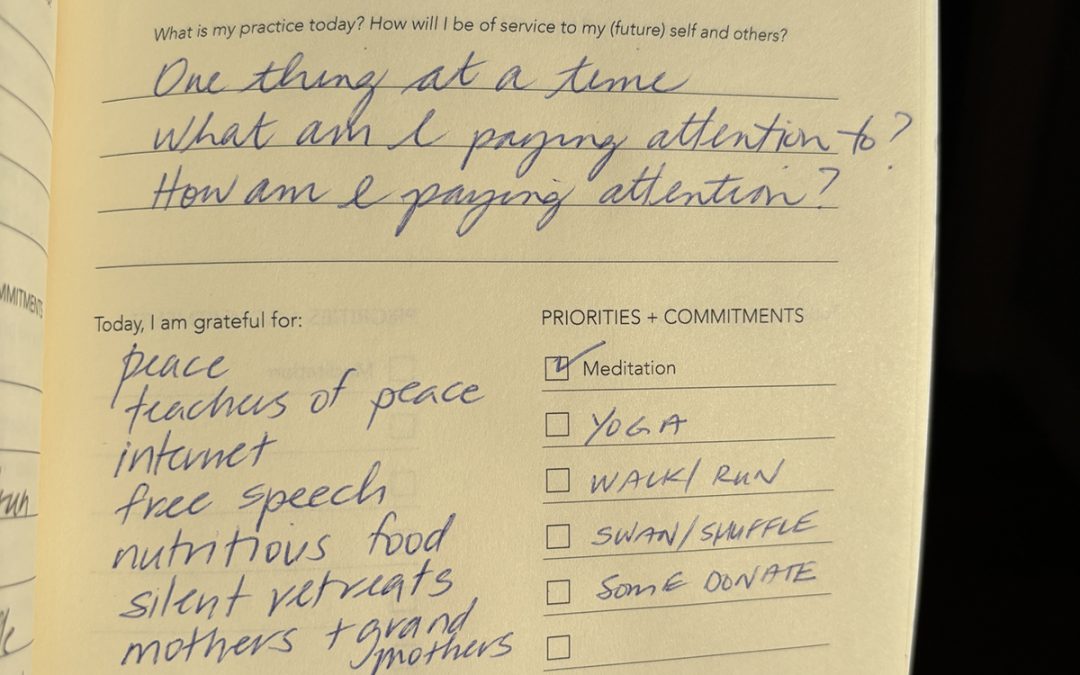 What is my practice today? How will I be of service to my (future) self and others?
One thing at a time
What am I paying attention to?
How am I paying attention?
MMITMENTS
Today, I am grateful for:
peace
teachers of peace
internet
free speech
nutritious food
silent retreats
mothers + grand
mothers
PRIORITIES + COMMITMENTS
Meditation
YOGA
WALK/RUN
SWAN/SHUFFLE
SOME DONATE
run